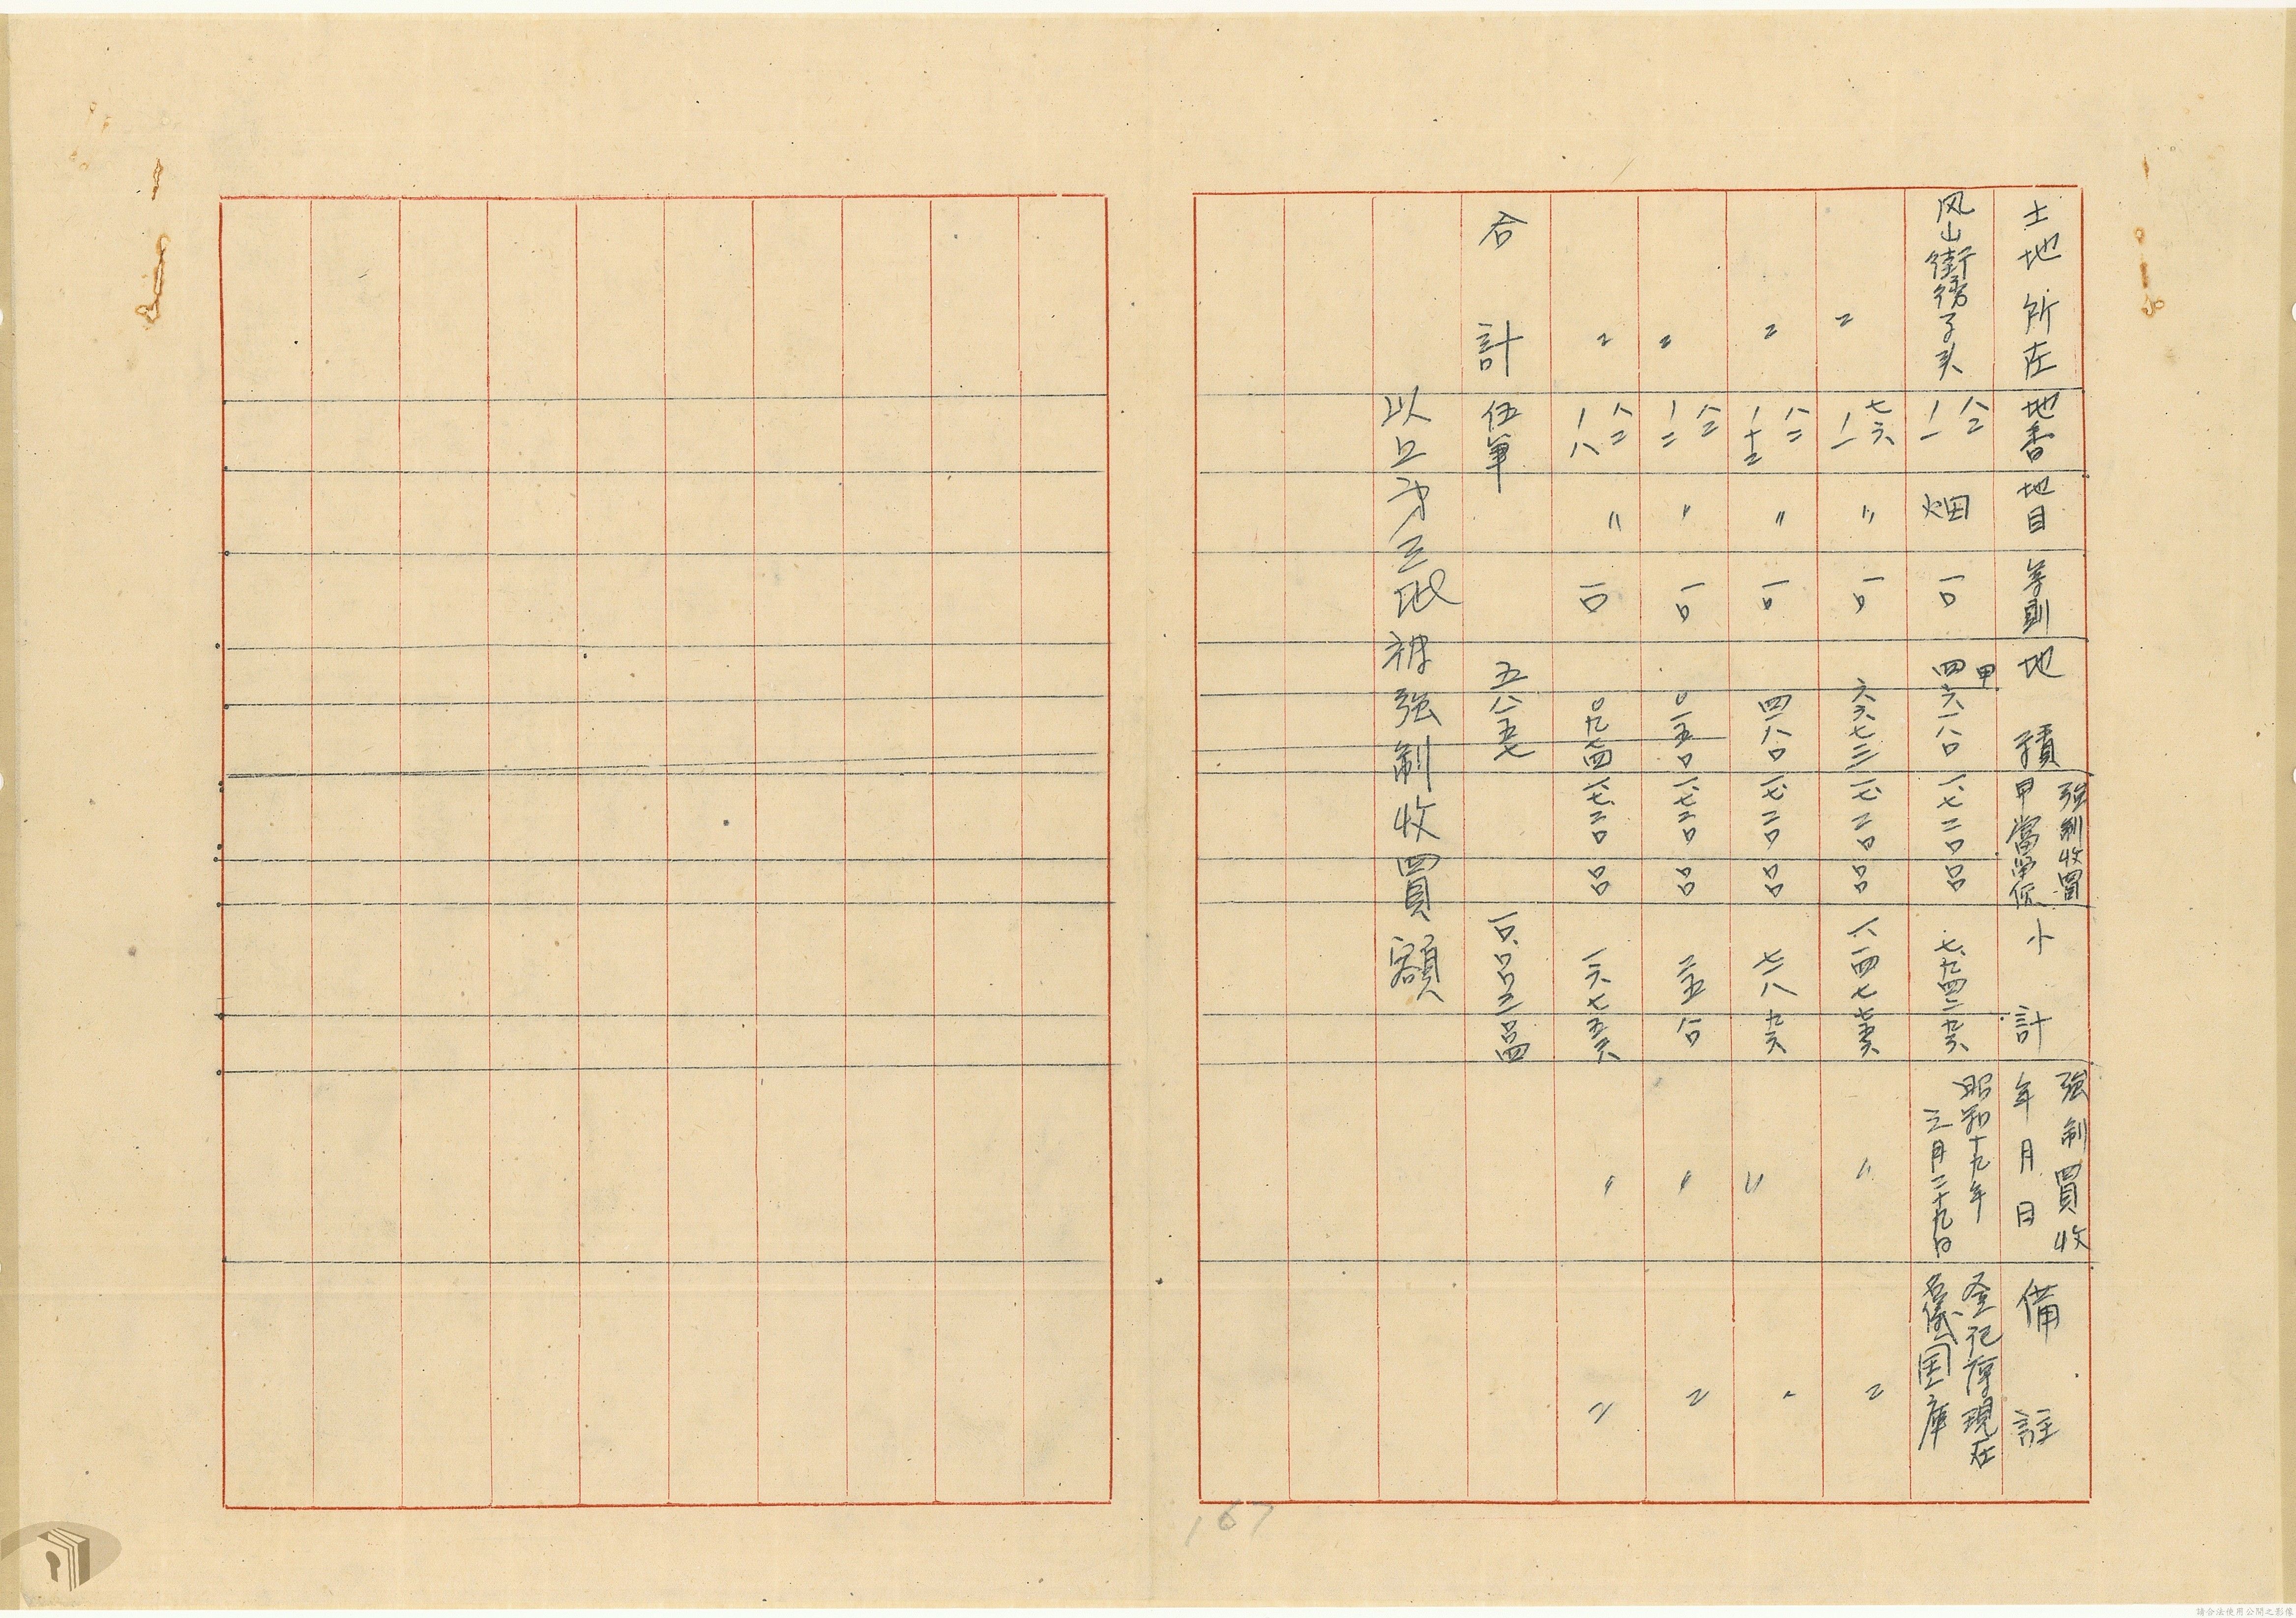 土地所在 地番 地目 等則 地積 強制收買甲當單價 小計 強制買收年月日 備註
凤山街 子头 八二 一一 畑 一〇 甲 四六一八〇 一、七二〇 〇〇 七、九四二 九六 昭和十九年三月二十九日 登记簿現在名儀国庫
〃 七六 一一 〃 一〇 六六七三 一、七二〇 〇〇 一一四七 七六 〃 〃
〃 八二 一十三 〃 一〇 四一八〇 一、七二〇 〇〇 七一八 九六 〃 〃
〃 八二 一二 〃 一〇 〇一五〇 一、七二〇 〇〇 二五 八〇 〃 〃
〃 八二 一八 〃 一〇 〇九七四 一、七二〇 〇〇 一六七 五六 〃 〃
合計 伍筆 五八一五七 一〇、〇〇三 〇四
以上才三批被強制收買額
167
請合法使用公開之影像